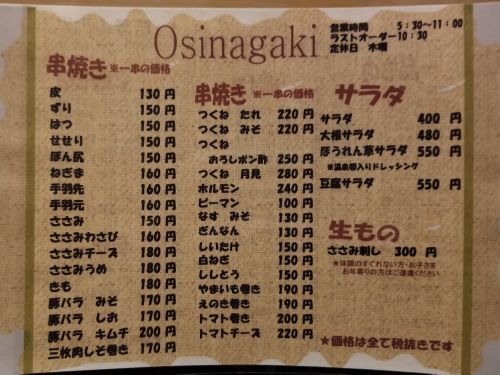 Osinagaki
営業時間 5:30～11:00
ラストオーダー10:30
定休日 木曜
串焼き ※一串の価格
皮 130 円
ずり 150 円
はつ 150 円
せせり 150 円
ぼん尻 150 円
ねぎま 160 円
手羽先 160 円
手羽元 160 円
ささみ 150 円
ささみわさび 160 円
ささみチーズ 180 円
ささみうめ 180 円
きも 180 円
豚バラ みそ 170 円
豚バラ しお 170 円
豚バラ キムチ 200 円
三枚肉しそ巻き 170 円
串焼き ※一串の価格
つくね たれ 220 円
つくね みそ 220 円
つくね
おろしポン酢 250 円
つくね 月見 280 円
ホルモン 240 円
ピーマン 100 円
なす みそ 130 円
ぎんなん 130 円
しいたけ 150 円
白ねぎ 150 円
ししとう 150 円
やまいも巻き 190 円
えのき巻き 190 円
トマト巻き 200 円
トマトチーズ 220 円
サラダ
サラダ 400 円
大根サラダ 480 円
ほうれん草サラダ 550 円
※温泉卵入りドレッシング
豆腐サラダ 550 円
生もの
ささみ刺し 300 円
★体調のすぐれない方・お子さま
お年寄りの方はご遠慮ください
★価格は全て税抜きです